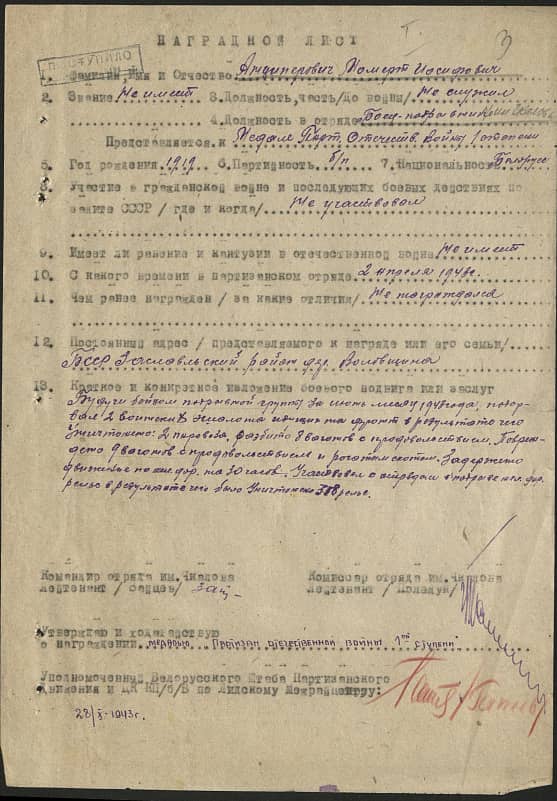 НАГРАДНОЙ ЛИСТ
3
ПОСТУПИЛО
1. Фамилия, Имя и Отчество Анциперович Иосифович
2. Звание Не имеет 3. Должность, часть/До войны/ Не служил
4. Должность в отряде Боец-подрывник
Представляется к Медале Парт. Отечеств. Войны I степени
5. Год рождения 1919 6. Партийность б/п 7. Национальность Белорус
8. Участие в гражданской войне и последующих боевых действиях по
защите СССР / где и когда/ Не участвовал
9. Имеет ли ранение и контузии в отечественной войне Не имеет
10. С какого времени в партизанском отряде 2 апреля 1943г.
11. Чем ранее награжден / за какие отличия/ Не награждался
12. Постоянный адрес / представляемого к награде или его семьи/
БССР Заславльский район дер. Воловщина
13. Краткое и конкретное изложение боевого подвига или заслуг
Будучи бойцом подрывной группы За июнь месяц 1943 года, подор-
вал 2 воинских эшелона идущих на фронт в результате чего
Уничтожено: 2 паровоза, разбито 8 вагонов с продовольствием, Повреж-
дено 9 вагонов с продовольствием и рогатым скотом. Задержано
движенье по жел. дор. на 30 часов. Участвовал с отрядом в подрыве жел. дор.
рельс в результате чего было Уничтожено 388 рельс.
Командир отряда им. Чкалова Комиссар отряда им. Чкалова
лейтенант / Сайцев/ лейтенант /
Утверждаю и ходатайствую
о награждении медалью "Партизан отечественной войны 1ой ступени"
Уполномоченный Белорусского Штаба Партизанского
Движения и ЦК КП/б/Б по Лидскому Межрайцентру:
28/X-1943г.